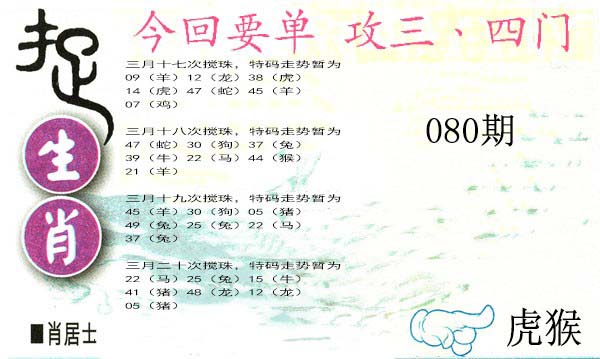 捉
生
肖
■肖居士
今回要单 攻三、四门
三月十七次搅珠，特码走势暂为
09（羊）12（龙）38（虎）
14（虎）47（蛇）45（羊）
07（鸡）
三月十八次搅珠，特码走势暂为
47（蛇）30（狗）37（兔）
39（牛）22（马）44（猴）
21（羊）
三月十九次搅珠，特码走势暂为
45（羊）30（狗）05（猪）
49（兔）25（兔）22（马）
37（兔）
三月二十次搅珠，特码走势暂为
22（马）25（兔）15（牛）
41（猪）48（龙）12（龙）
05（猪）
080期
虎猴